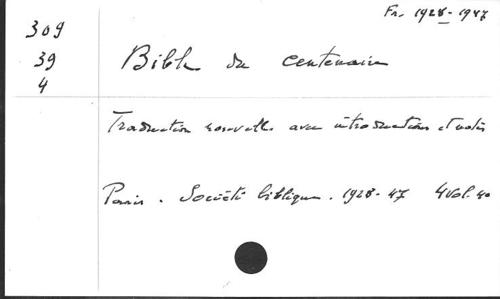 Fr. 1928-1947
309
39
4
Bible du centenaire
Traduction nouvelle avec introductions et notes
Paris. Société biblique. 1928-47 4 vol. 4o